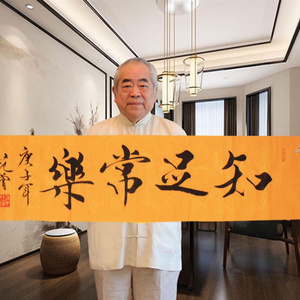 知足常樂
庚子年